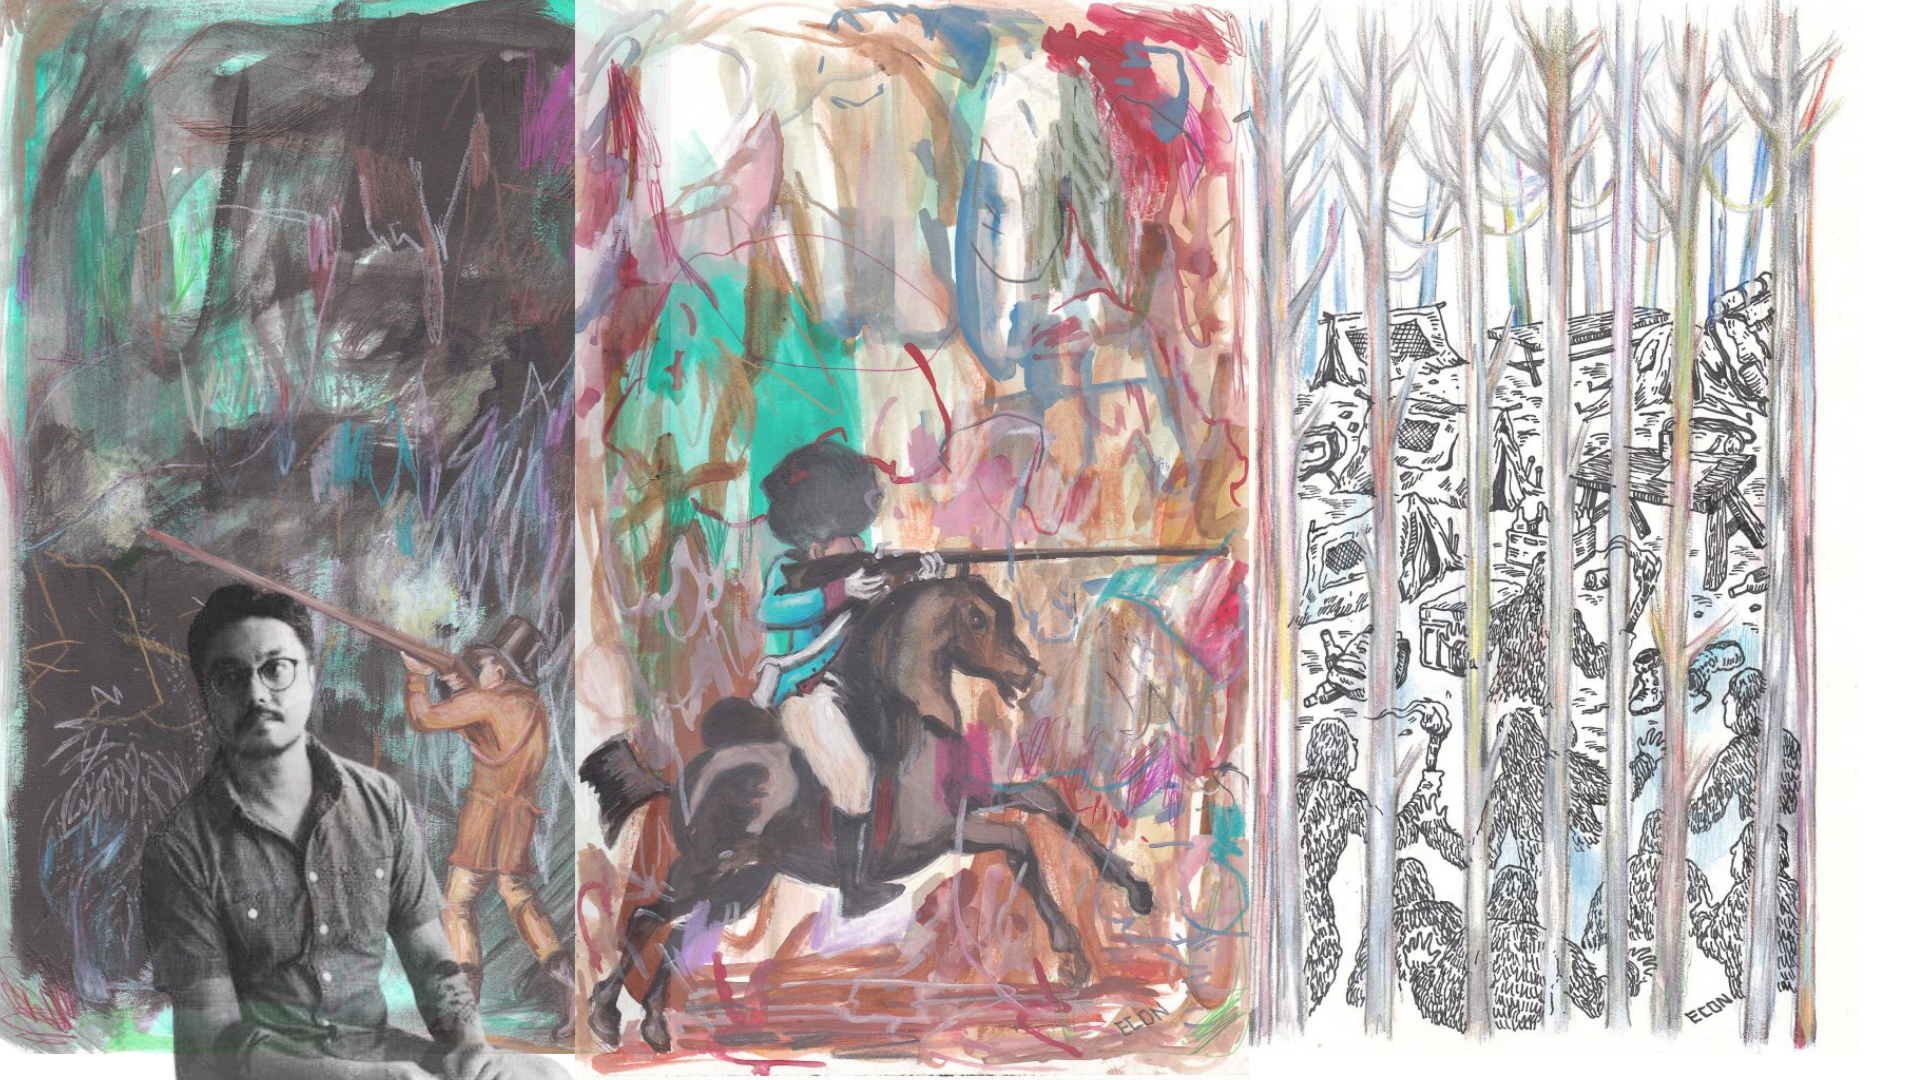 ECON
ECON